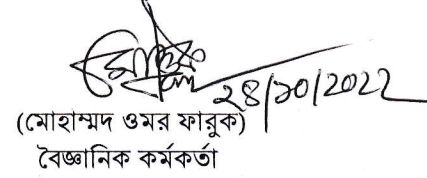 ২৪/১০/2022
(মোহাম্মদ ওমর ফারুক)
বৈজ্ঞানিক কর্মকর্তা